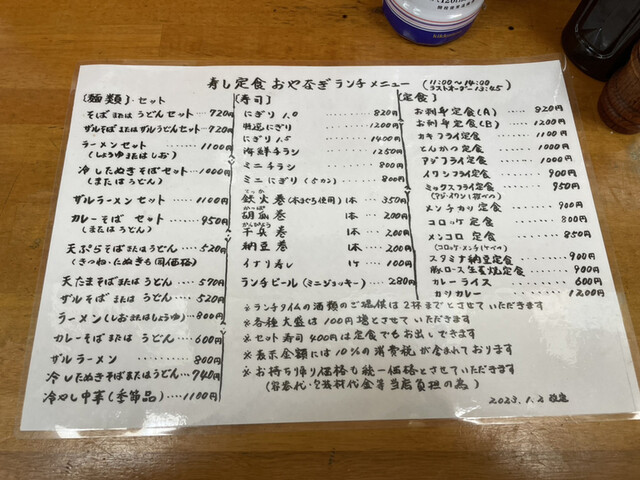 寿し定食 おやなぎ ランチメニュー (11:00〜14:00 ラストオーダー13:45)
〔麺類〕・セット
そばまたはうどんセット‥720円
ザルそばまたはザルうどんセット‥720円
ラーメンセット ‥‥1100円
(しょうゆまたはしお)
冷したぬきそばセット‥1000円
(またはうどん)
ザルラーメンセット ‥‥1100円
カレーそば セット ‥‥950円
(またはうどん)
天ぷらそばまたはうどん‥‥520円
(きつね・たぬきも同価格)
天たまそばまたはうどん‥‥570円
ザルそばまたはうどん‥‥520円
ラーメン(しおまたはしょうゆ)‥800円
カレーそばまたはうどん‥‥600円
ザルラーメン ‥‥‥‥800円
冷したぬきそばまたはうどん‥‥740円
冷やし中華(季節品)‥‥1100円
〔寿司〕
にぎり 1.0 ‥‥‥820円
特選にぎり ‥‥‥1200円
にぎり 1.5 ‥‥‥1400円
海鮮チラシ ‥‥‥1250円
ミニチラシ ‥‥‥800円
ミニにぎり(5カン)‥‥800円
てっか
鉄火巻(本まぐろ使用) 1本‥‥350円
かっぱ
胡瓜巻 1本‥‥200円
かんぴょう
干瓢巻 1本‥‥200円
納豆巻 1本‥‥200円
イナリ寿し 1ケ‥‥100円
ランチビール(ミニジョッキー)‥‥280円
〔定食〕
お刺身定食(A)‥‥920円
お刺身定食(B)‥‥1200円
カキフライ定食 ‥‥1100円
とんかつ定食 ‥‥1000円
アジフライ定食 ‥‥1000円
イワシフライ定食 ‥‥900円
ミックスフライ定食 ‥‥950円
メンチカツ定食 ‥‥900円
コロッケ定食 ‥‥800円
メンコロ定食 ‥‥850円
スタミナ納豆定食 ‥‥900円
豚ロース生姜焼定食‥‥900円
カレーライス ‥‥600円
カツカレー ‥‥1200円
※ランチタイムの酒類のご提供は2杯までとさせていただきます
※各種大盛は100円増とさせていただきます
※セット寿司400円は定食でもお出しできます
※表示金額には10%の消費税が含まれております
※お持ち帰り価格も統一価格とさせていただきます
(容器代・包装材代金等当店負担の為)
2023.1.2 改定